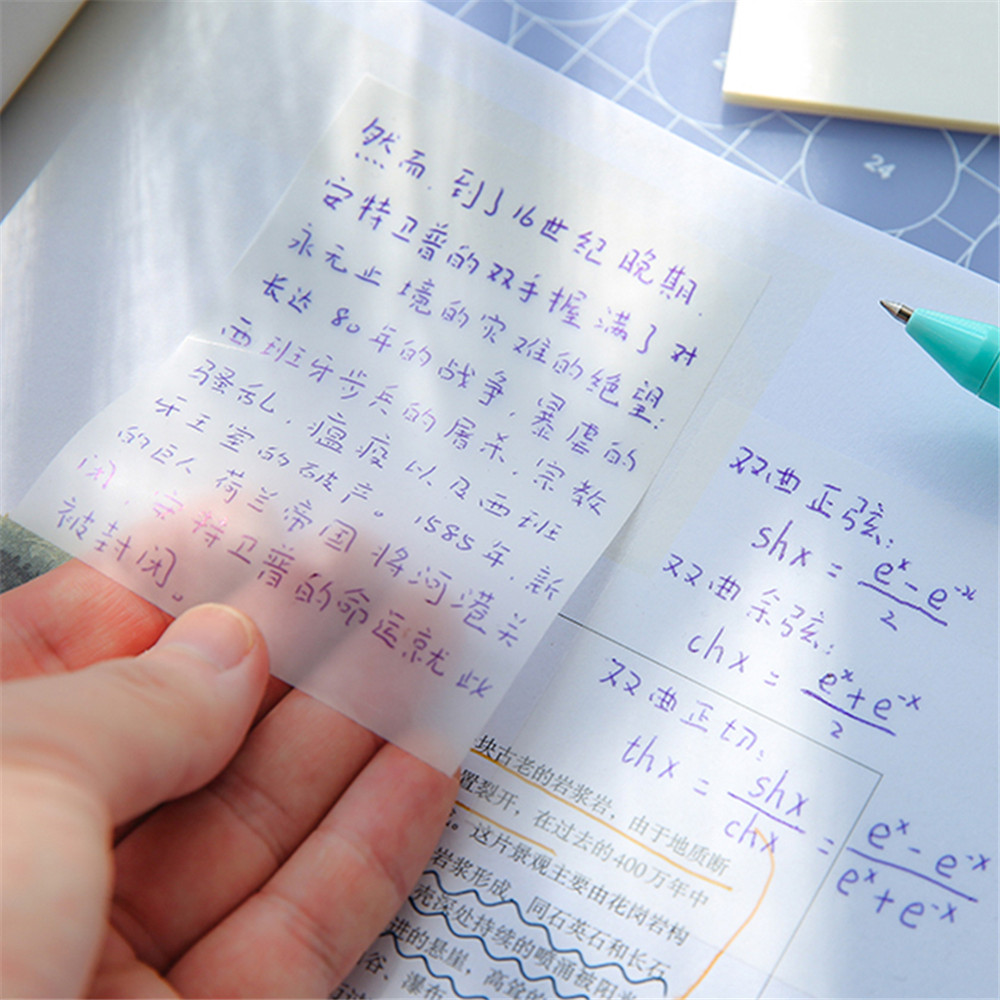 然而,到了16世纪晚期.
安特卫普的双手握满了对
永无止境的灾难的绝望:
长达80年的战争,暴虐的
西班牙步兵的屠杀,宗教
骚乱,瘟疫以及西班
牙王室的破产。1585年,新
的巨人荷兰帝国将河港关
闭,安特卫普的命运就此
被封闭。
24
双曲正弦:
shx = (e^x - e^-x)/2
双曲余弦:
chx = (e^x + e^-x)/2
双曲正切:
thx = shx/chx = (e^x - e^-x)/(e^x + e^-x)
块古老的岩浆岩,由于地质断
置裂开,在过去的400万年中
。这片景观主要由花岗岩构
岩浆形成,同石英石和长石
壳深处持续的喷涌被阳光
进的悬崖,高耸的
谷、瀑布